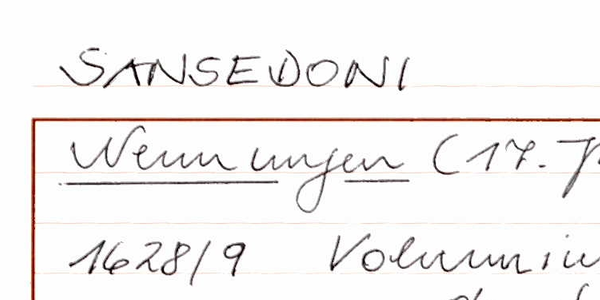 SANSEDONI
Nennungen (17. J
1628/9 Volumniu